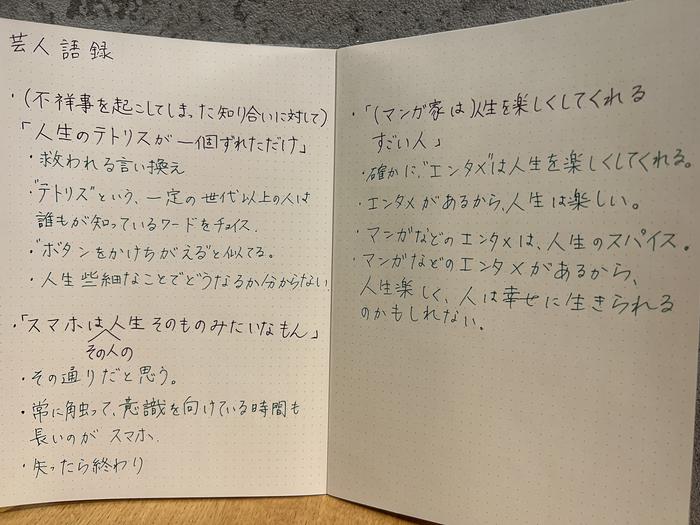 芸人語録
・(不祥事を起こしてしまった知り合いに対して)
「人生のテトリスが一個ずれただけ」
・救われる言い換え
・"テトリス"という、一定の世代以上の人は
誰もが知っているワードをチョイス.
・"ボタンをかけちがえる"と似てる。
・人生些細なことでどうなるか分からない.
・「スマホは人生そのものみたいなもん」
その人の
・その通りだと思う。
・常に触って、意識を向けている時間も
長いのがスマホ.
・失ったら終わり
・「(マンガ家は)人生を楽しくしてくれる
すごい人」
・確かに、"エンタメ"は人生を楽しくしてくれる。
・エンタメがあるから、人生は楽しい。
・マンガなどのエンタメは、人生のスパイス。
・マンガなどのエンタメがあるから、
人生楽しく、人は幸せに生きられる
のかもしれない.